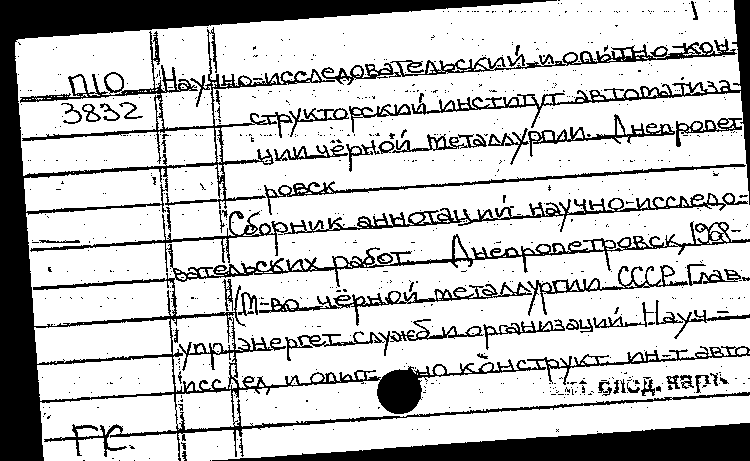 П10 Научно-исследовательский и опытно-кон-
3832 структорский институт автоматиза-
ции чёрной металлургии. Днепропет
ровск
Сборник аннотаций научно-исследо-
вательских работ. Днепропетровск, 1968-
(М-во чёрной металлургии СССР. Глав.
упр. энергет. служб и организаций. Науч-
исслед. и опыт- но конструкт. ин-т авто
см. след. карт.
ГК.